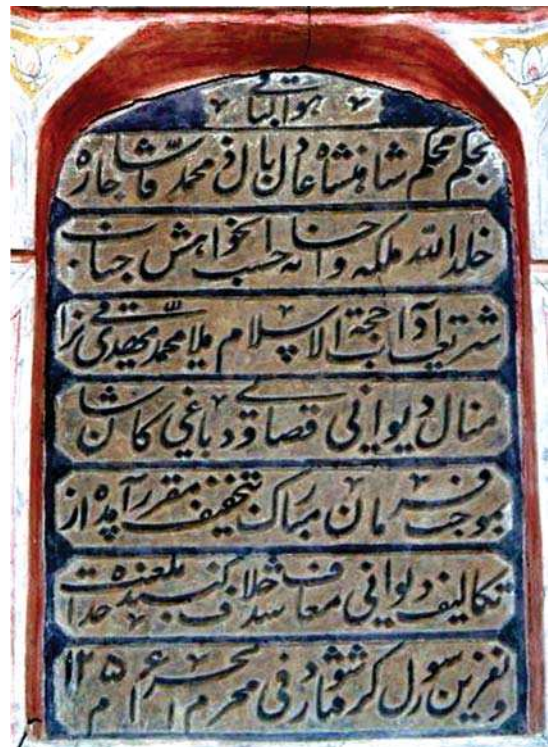 هو الباقی
بحکم محکم شاهنشاه عادل باذل محمّد شاه قاجار
خلد الله ملکه و حسب الخواهش جناب
حجة الاسلام ملا محمّد مهدی نراقی
منال دیوانی قصابی و دباغی کاشان
بموجب فرمان مبارک بتخفیف مقرر آمده از
تکالیف دیوانی معاف شد خلاف کننده بلعنت خدا
و نفرین رسول گرفتار شود فی محرم الحرام